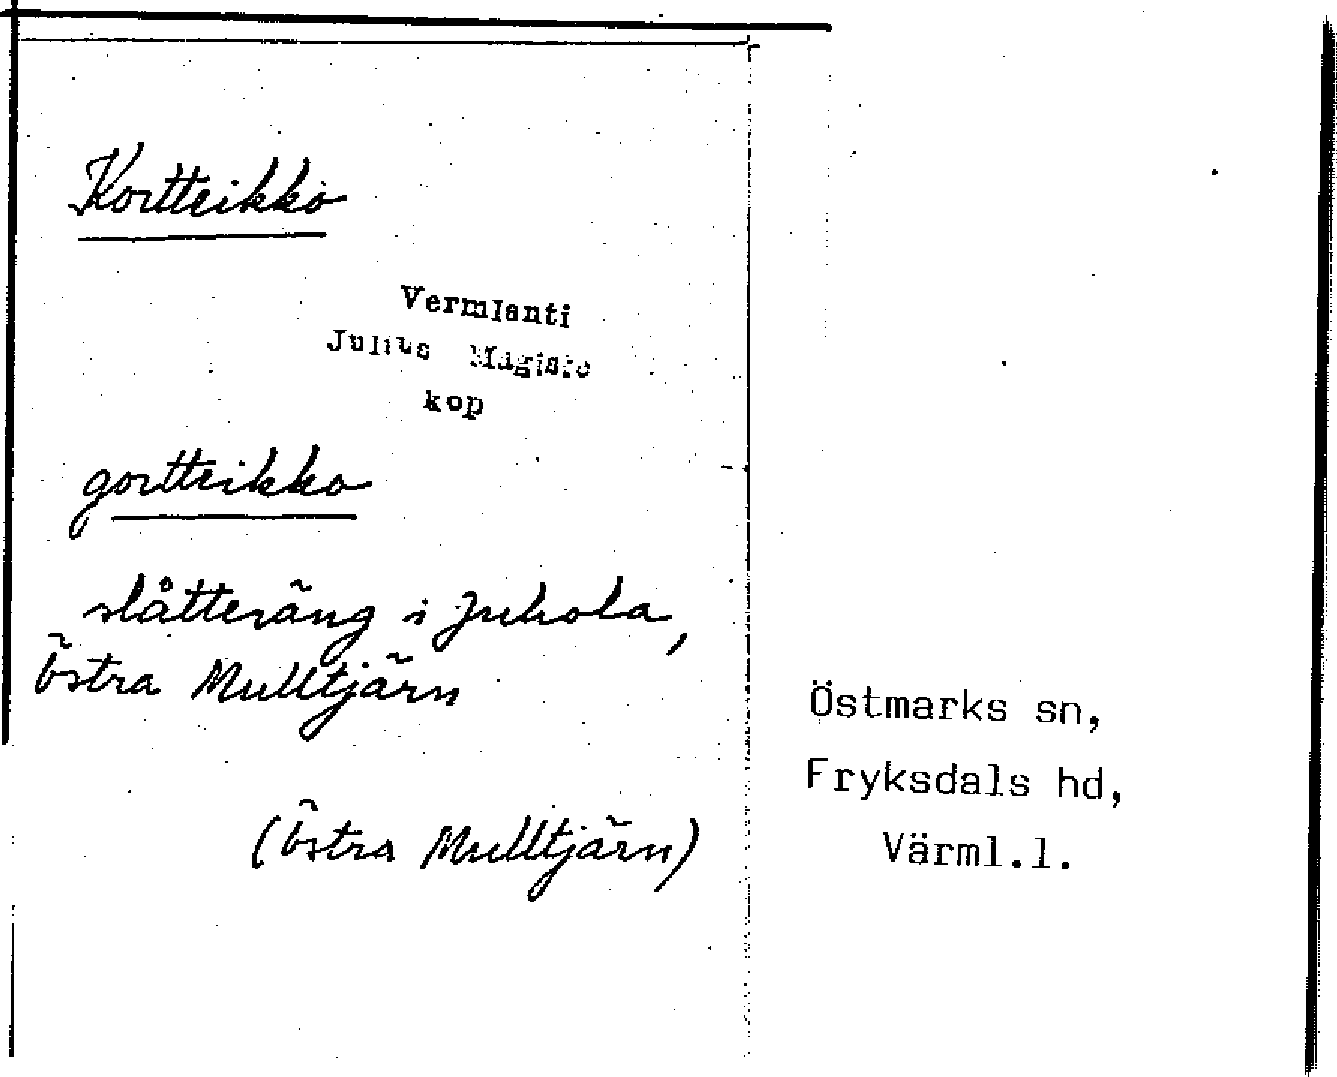 Kortteikko
Vermlanti
Julius Mägiste
kop
gortteikko
slåtteräng i Juhola,
Östra Mulltjärn
(Östra Mulltjärn)
Östmarks sn,
Fryksdals hd,
Värml.l.